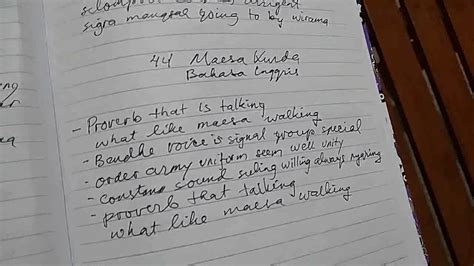 signal going to by wirama
44 Maesa Kurda
Bahasa Inggris
- Proverb that is talking
what like maesa walking
- Bendhe voice is signal group special
- order army uniform seem well unity
- constans sound suling willing always
- proverb that talking
what like maesa walking